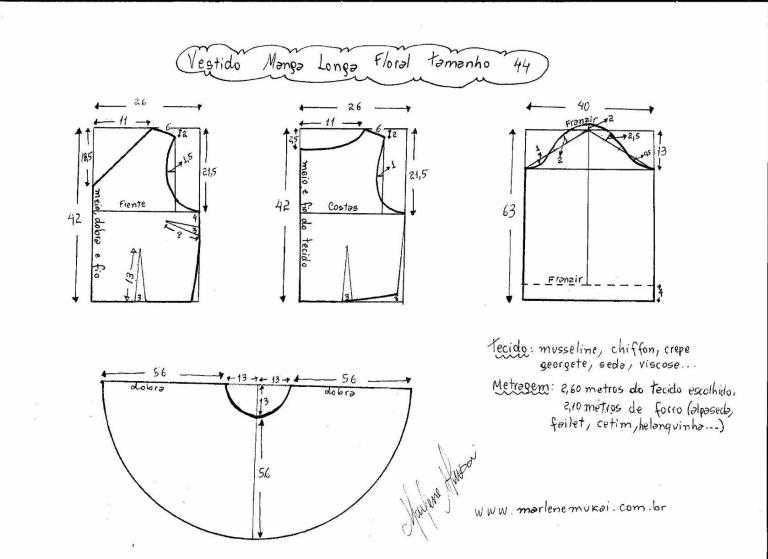 Vestido Manga Longa Floral tamanho 44
26
11
6
2
18,5
1,5
21,5
42
Frente
meio, dobra e fio
4
3
9
13
3
26
11
6
2
3,5
1
21,5
42
Costas
meio e fio do tecido
3
40
Franzir
2
1
2
2,5
0,5
13
63
Franzir
4
56
13
13
56
dobra
dobra
13
56
Tecido: musseline, chiffon, crepe
georgete, seda, viscose...
Metragem: 2,60 metros do tecido escolhido.
2,10 metros de forro (alpaseda,
failet, cetim, helanquinha...)
Marlene Mukai
www.marlenemukai.com.br